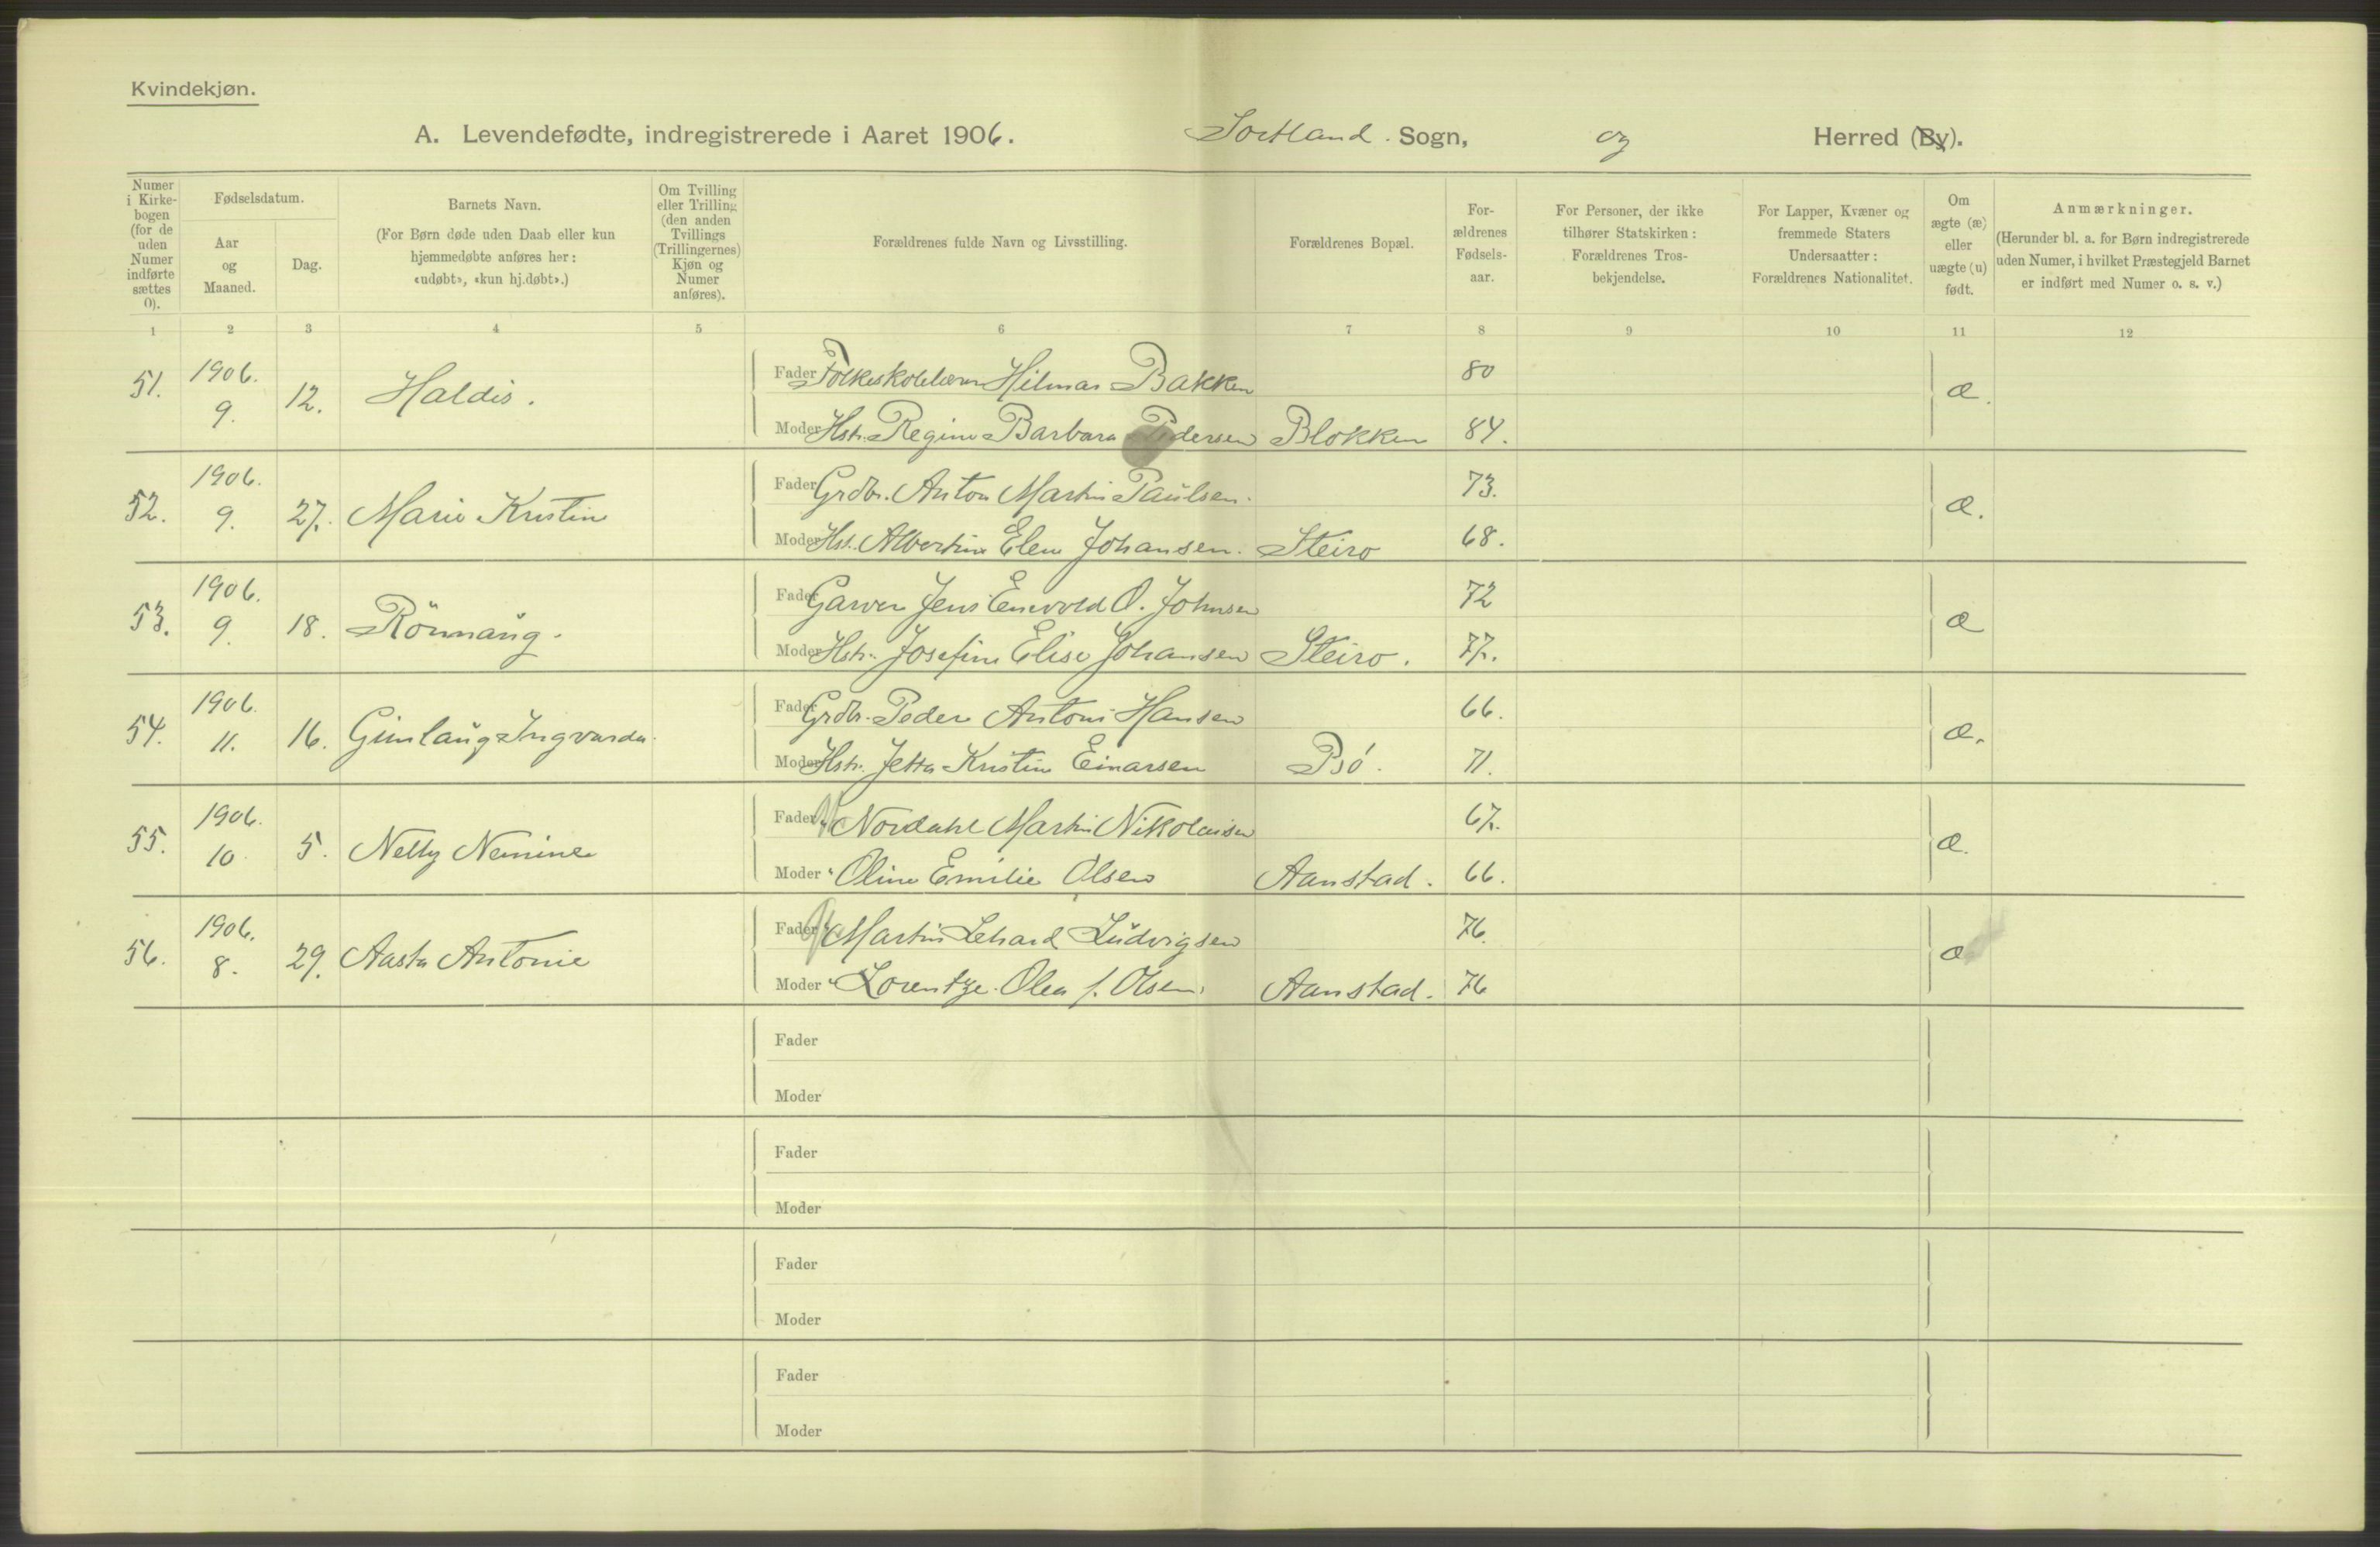 Kvindekjøn.
A. Levendefødte, indregistrerede i Aaret 1906. Sortland. Sogn, og Herred (By).
Numer i Kirke-bogen (for de uden Numer indførte sættes 0).
Fødselsdatum.
Aar og Maaned.
Dag.
Barnets Navn.
(For Børn døde uden Daab eller kun hjemmedøbte anføres her: «udøbt», «kun hj.døbt».)
Om Tvilling eller Trilling (den anden Tvillings (Trillingernes) Kjøn og Numer anføres).
Forældrenes fulde Navn og Livsstilling.
Forældrenes Bopæl.
For-ældrenes Fødsels-aar.
For Personer, der ikke tilhører Statskirken: Forældrenes Tros-bekjendelse.
For Lapper, Kvæner og fremmede Staters Undersaatter: Forældrenes Nationalitet.
Om ægte (æ) eller uægte (u) født.
Anmærkninger.
(Herunder bl. a. for Børn indregistrerede uden Numer, i hvilket Præstegjeld Barnet er indført med Numer o. s. v.)
1 2 3 4 5 6 7 8 9 10 11 12
51. 1906. 9. 12. Haldis. æ.
Fader Folkeskolelærer Hilmar Bakken 80
Moder Hstr. Regine Barbara Pedersen Blokken 84.
52. 1906. 9. 27. Marie Kristin æ.
Fader Grdbr. Anton Martin Paulsen. 73.
Moder Hst. Albertine Elen Johansen. Steiro 68.
53. 1906. 9. 18. Rönnaug. æ
Fader Garver Jens Enevold O. Johnsen 72
Moder Hstr. Josefine Elise Johansen Steiro. 77.
54. 1906. 11. 16. Gunlaug Ingvarda. æ.
Fader Grdbr. Peder Antoni Hansen 66.
Moder Hstr. Jetta Kristine Einarsen Bø. 71.
55. 1906. 10. 5. Nelly Nemine æ.
Fader " Nordahl Martin Nikolaisen 67.
Moder " Oline Emilie Olsen Aanstad. 66.
56. 1906. 8. 29. Aasta Antonie æ
Fader " Martin Lehard Ludvigsen 76.
Moder " Lorentze Olea f. Olsen. Aanstad. 76
Fader
Moder
Fader
Moder
Fader
Moder
Fader
Moder